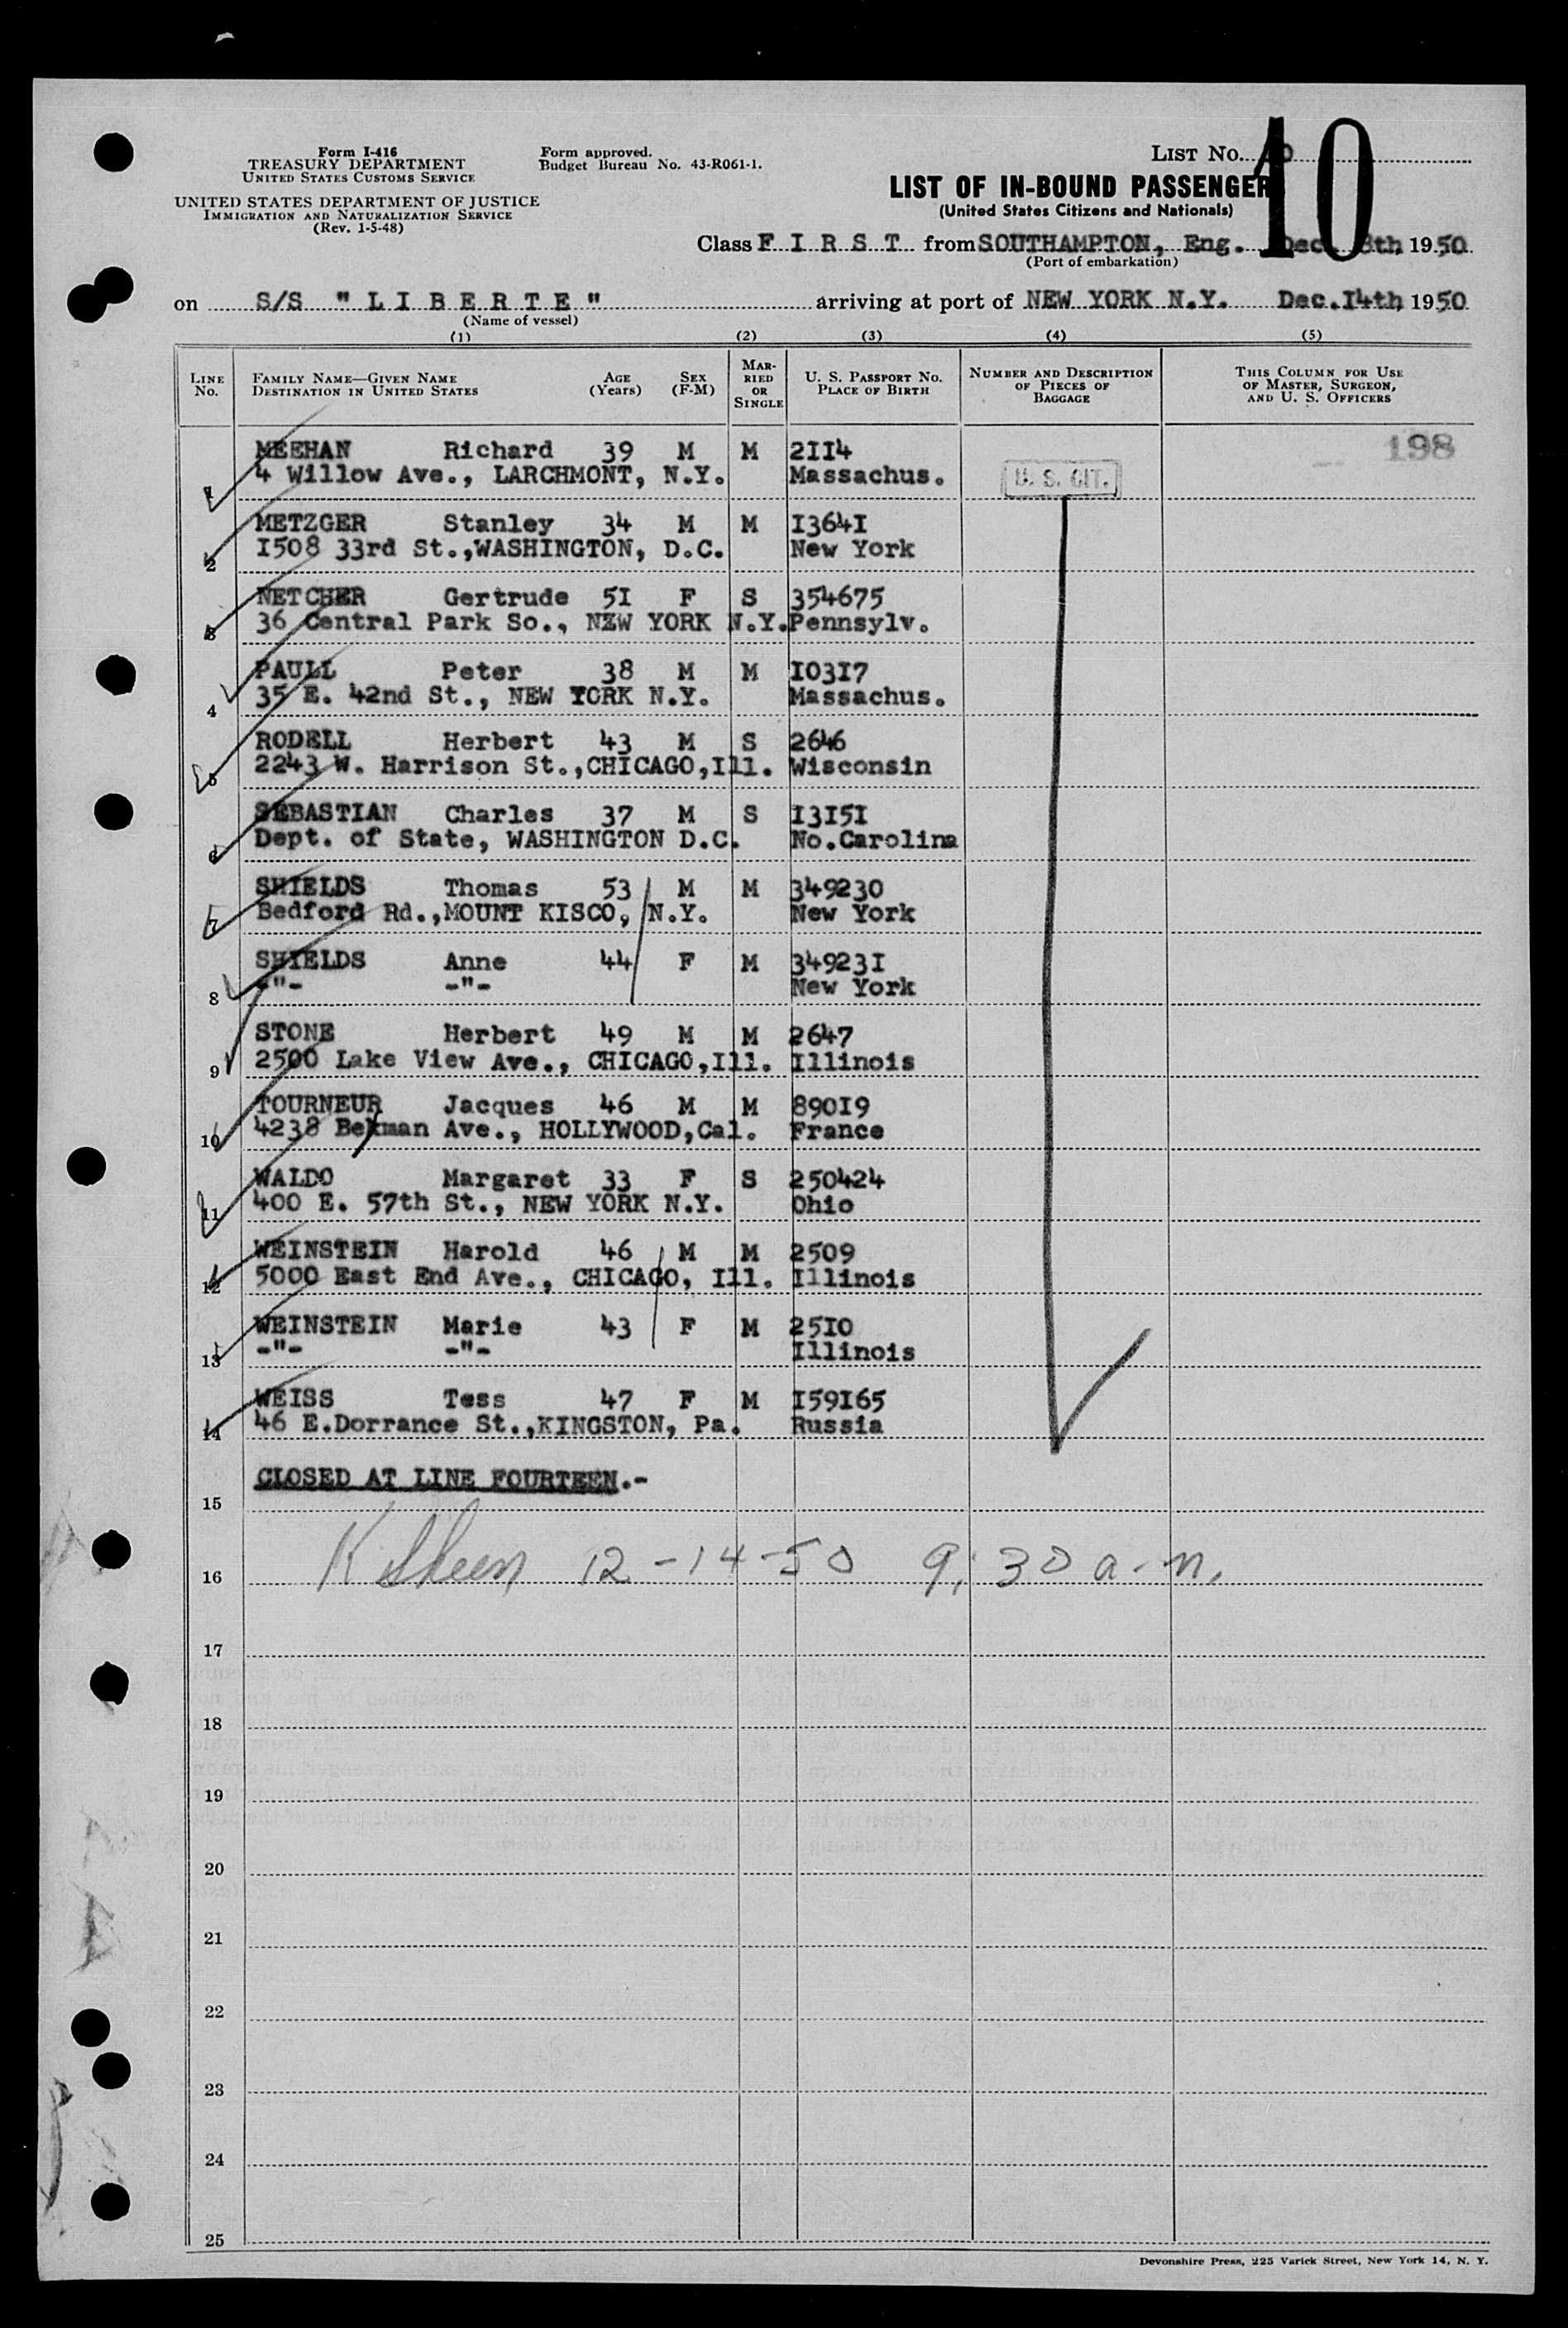 Form I-416
TREASURY DEPARTMENT
UNITED STATES CUSTOMS SERVICE
UNITED STATES DEPARTMENT OF JUSTICE
IMMIGRATION AND NATURALIZATION SERVICE
(Rev. 1-5-48)
Form approved.
Budget Bureau No. 43-R061-1.
LIST No. 10
LIST OF IN-BOUND PASSENGER
(United States Citizens and Nationals)
Class F I R S T from SOUTHAMPTON, Eng. Dec. 8th, 1950
(Port of embarkation)
on S/S " L I B E R T E " arriving at port of NEW YORK N.Y. Dec.I4th, 1950
(Name of vessel)
(1) (2) (3) (4) (5)
LINE No. FAMILY NAME—GIVEN NAME DESTINATION IN UNITED STATES AGE (Years) SEX (F-M) MARRIED OR SINGLE U. S. PASSPORT NO. PLACE OF BIRTH NUMBER AND DESCRIPTION OF PIECES OF BAGGAGE THIS COLUMN FOR USE OF MASTER, SURGEON, AND U. S. OFFICERS
MEEHAN Richard 39 M M 2II4 198
1 4 Willow Ave., LARCHMONT, N.Y. Massachus. U. S. CIT.
METZGER Stanley 34 M M I364I
2 I508 33rd St.,WASHINGTON, D.C. New York
NETCHER Gertrude 5I F S 354675
3 36 Central Park So., NEW YORK N.Y. Pennsylv.
PAULL Peter 38 M M I03I7
4 35 E. 42nd St., NEW YORK N.Y. Massachus.
RODELL Herbert 43 M S 2646
5 2243 W. Harrison St.,CHICAGO,Ill. Wisconsin
SEBASTIAN Charles 37 M S I3I5I
6 Dept. of State, WASHINGTON D.C. No.Carolina
SHIELDS Thomas 53 M M 349230
7 Bedford Rd.,MOUNT KISCO, N.Y. New York
SHIELDS Anne 44 F M 34923I
8 -"- -"- New York
STONE Herbert 49 M M 2647
9 2500 Lake View Ave., CHICAGO,Ill. Illinois
TOURNEUR Jacques 46 M M 890I9
10 4238 Bekman Ave., HOLLYWOOD,Cal. France
WALDO Margaret 33 F S 250424
11 400 E. 57th St., NEW YORK N.Y. Ohio
WEINSTEIN Harold 46 M M 2509
12 5000 East End Ave., CHICAGO, Ill. Illinois
WEINSTEIN Marie 43 F M 25I0
13 -"- -"- Illinois
WEISS Tess 47 F M I59I65
14 46 E.Dorrance St.,KINGSTON, Pa. Russia
CLOSED AT LINE FOURTEEN.-
15
16 12-14-50 9:30 a.m.
17
18
19
20
21
22
23
24
25
Devonshire Press, 225 Varick Street, New York 14, N. Y.